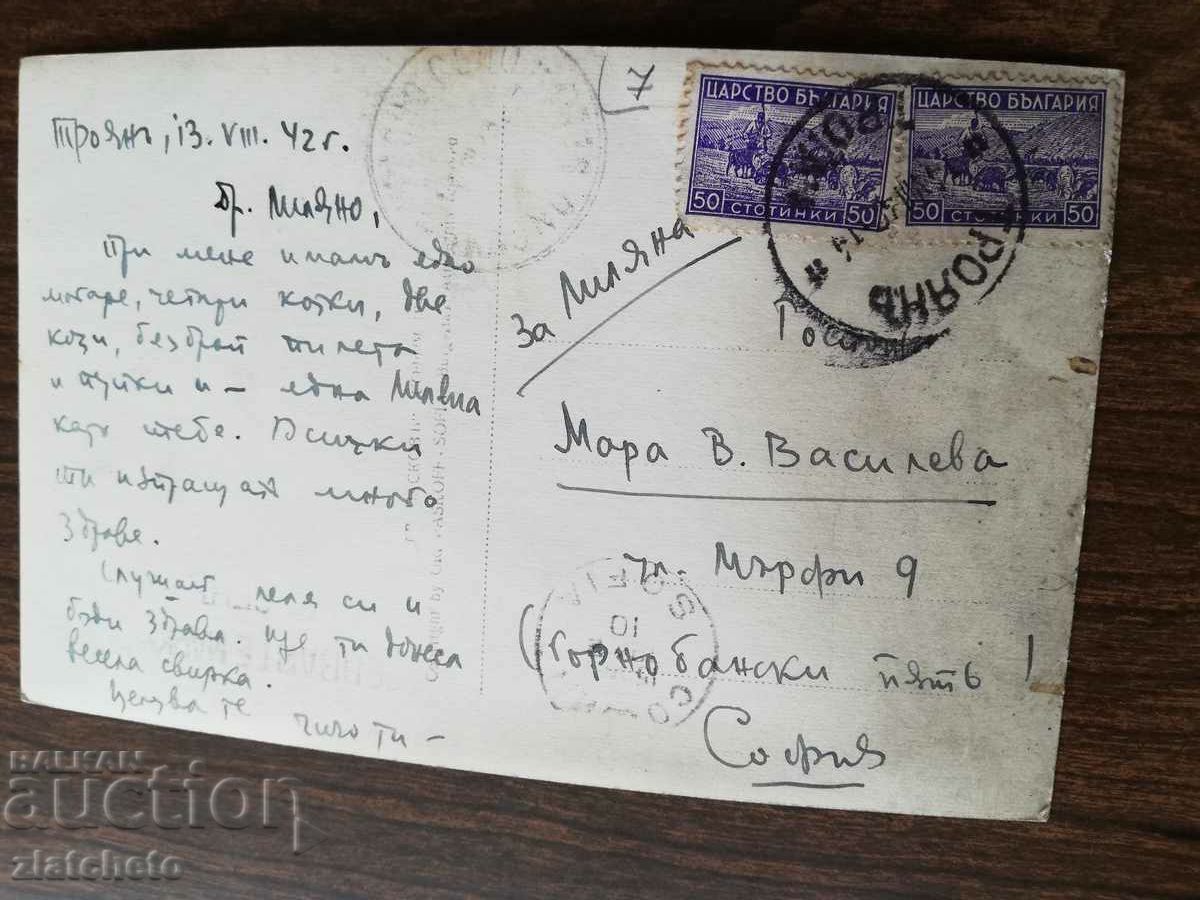 Троянъ, 13. VIII. 42 г.
Др. Миляно,
При мене имамъ едно
магаре, четири котки, две
кози, безброй пилета
и пуйки и – една Миляна
като тебе. Всички
ти изпращатъ много
здраве.
Слушай леля си и
бъди здрава. Ще ти донеса
весела свирка.
Целува те чичо ти –
7
ЦАРСТВО БЪЛГАРИЯ
50 СТОТИНКИ 50
ЦАРСТВО БЪЛГАРИЯ
50 СТОТИНКИ 50
ТРОЯНЪ
За Миляна
Мара В. Василева
ул. Мърфи 9
(Горнобански пять)
София
SOFIA
10
BALKAN
auction
zlatcheto